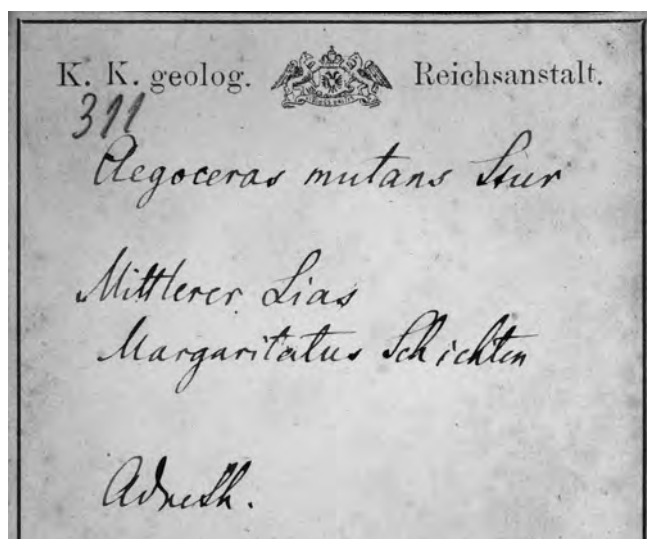 K. K. geolog. Reichsanstalt.
311
Aegoceras mutans Stur
Mittlerer Lias
Margaritatus Schichten
Adneth.